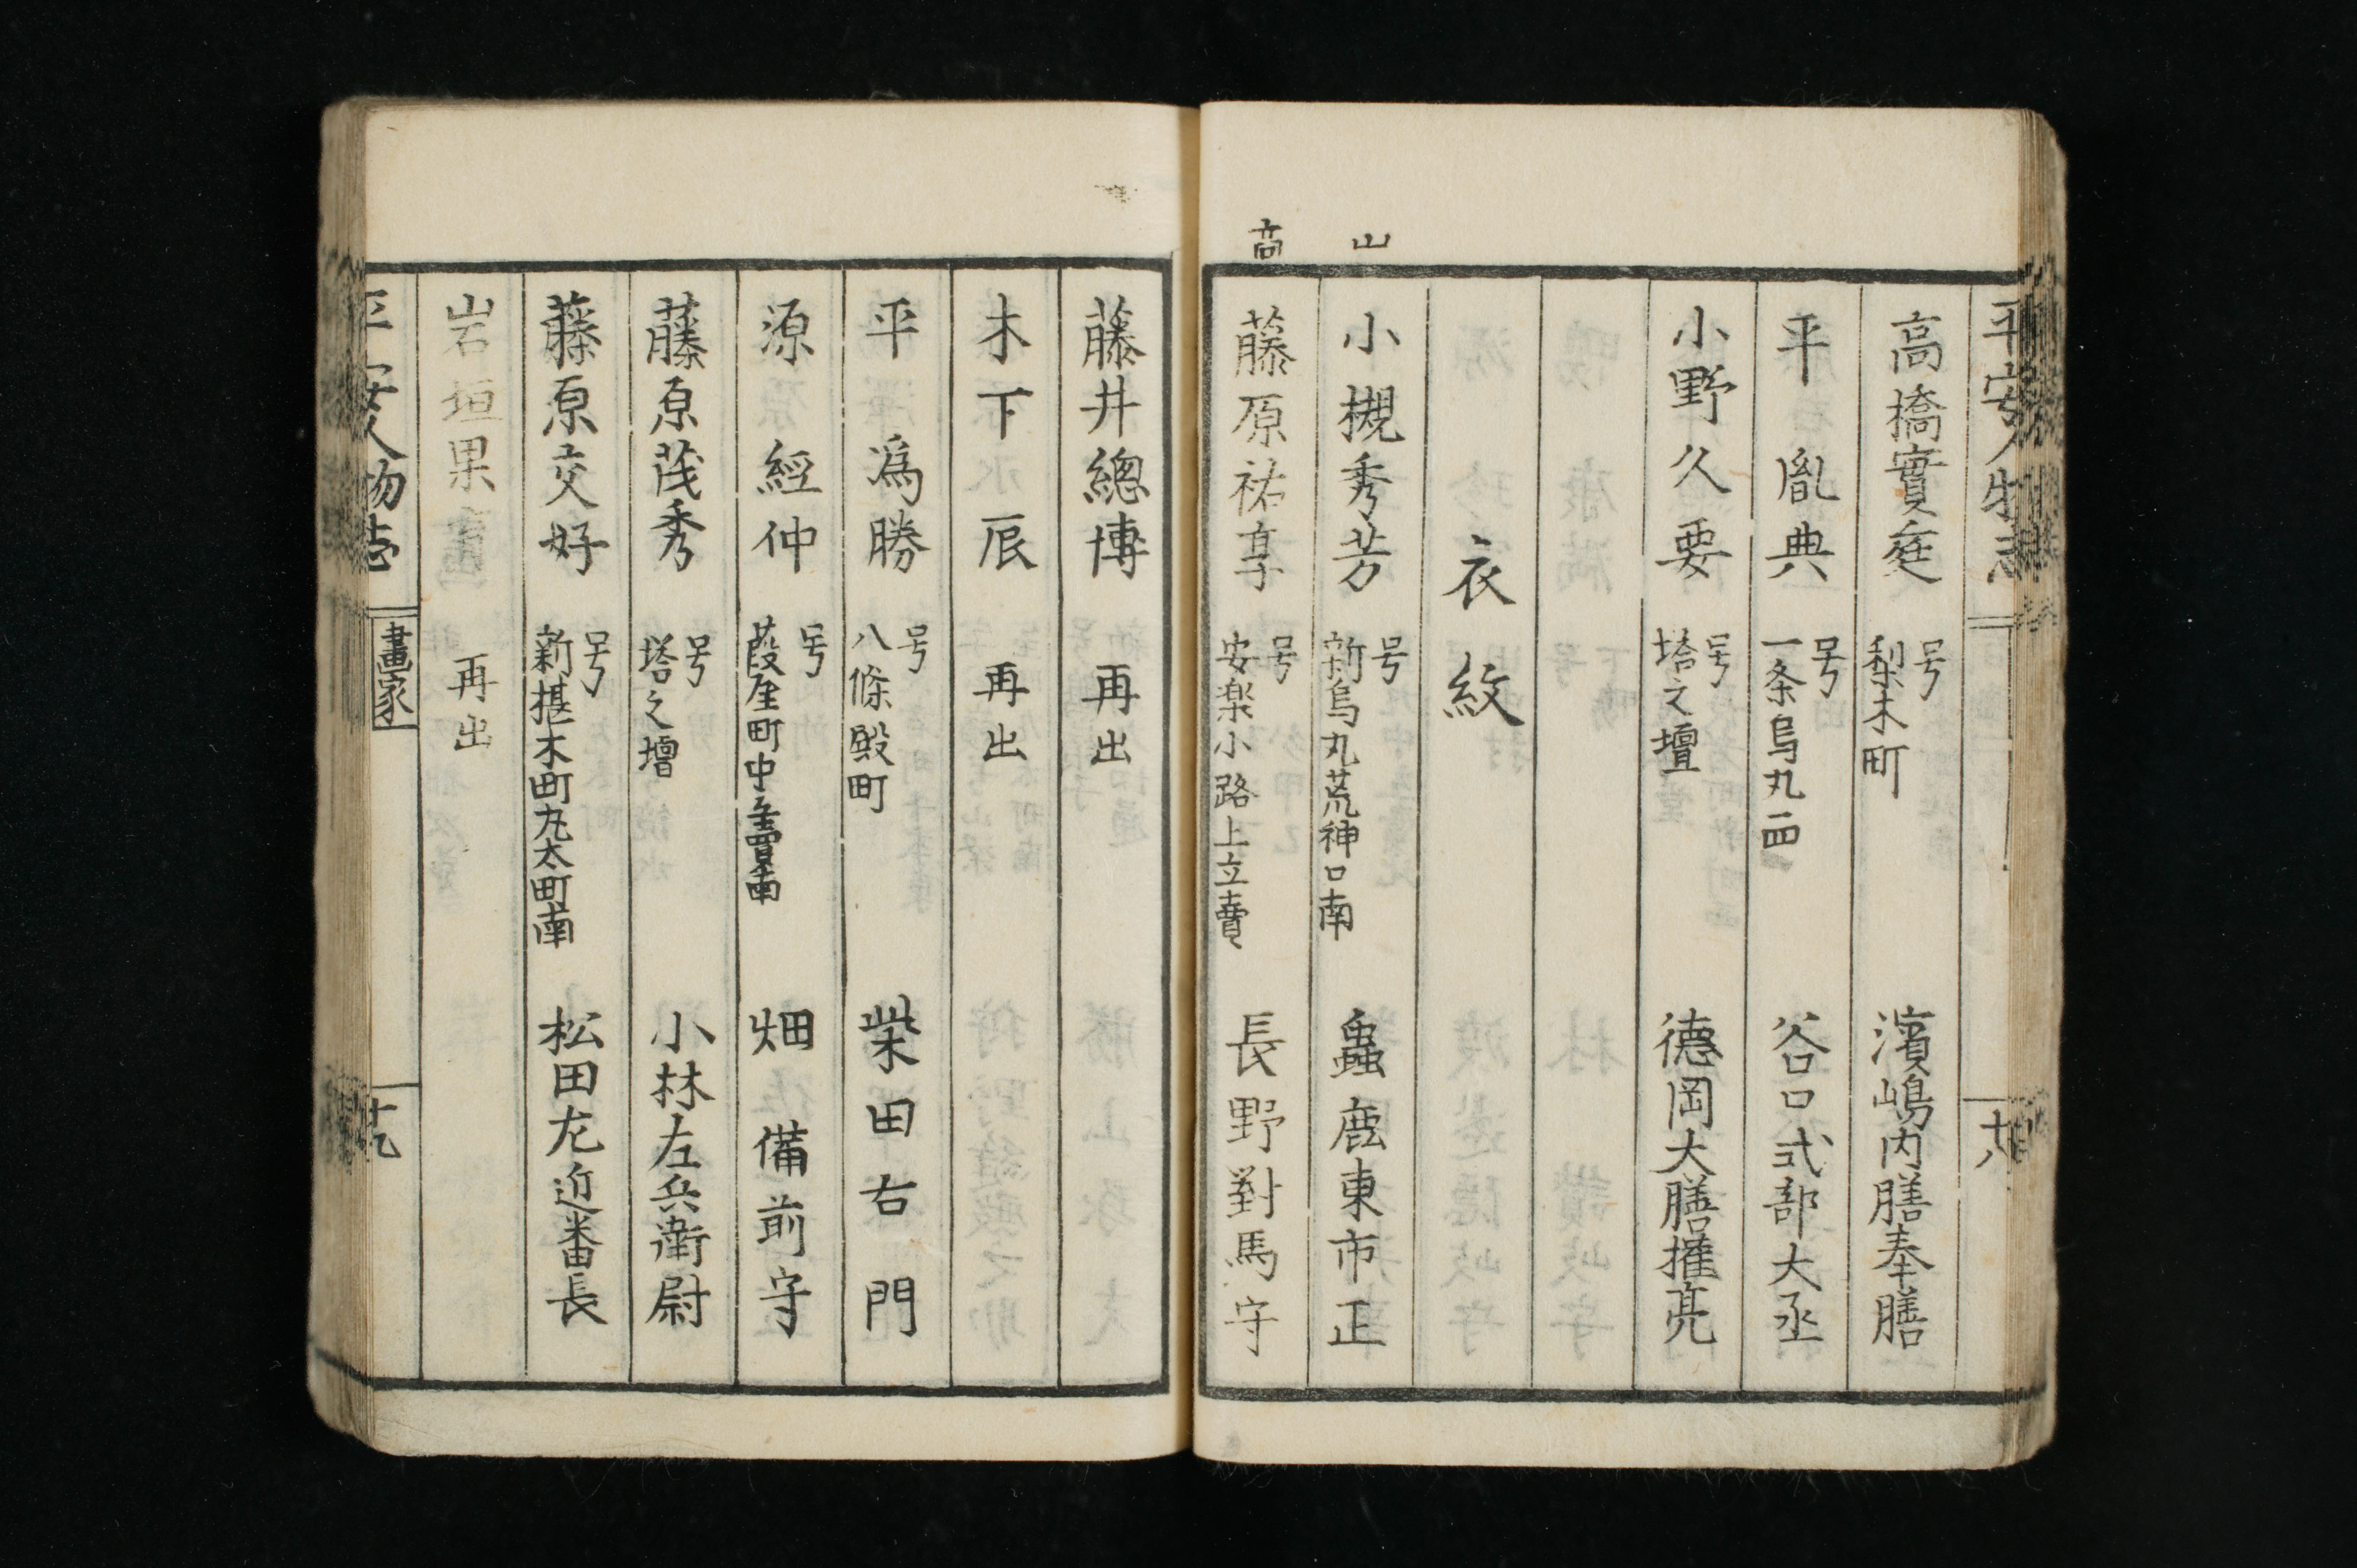 平安人物志
十八
高橋實庭 号 梨木町 濱嶋内膳奉膳
平胤典 号 一条烏丸西 谷口式部大丞
小野久要 号 塔之壇 德岡大膳権亮
衣紋
山
小槻秀芳 号 新烏丸荒神口南 螽鹿東市正
高
藤原祐享 号 安楽小路上立賣 長野對馬守
藤井總博 再出
木下水辰 再出
平為勝 号 八條殿町 柴田右門
源經仲 号 葭屋町中立賣南 畑備前守
藤原茂秀 号 塔之壇 小林左兵衛尉
藤原交好 号 新椹木町丸太町南 松田左近番長
岩垣果 再出
平安人物志
畫家
十九